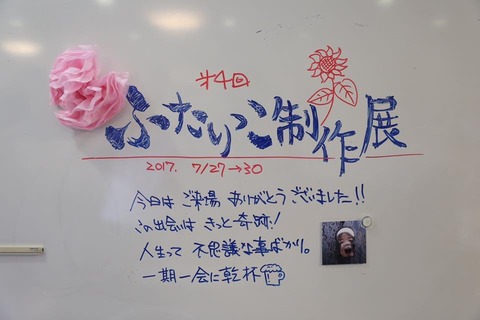 第4回
ふたりっこ制作展
2017. 7/27→30
今日は ご来場 ありがとう ございました!!
この出会いは きっと奇跡!
人生って 不思議な事ばかり。
一期一会に乾杯